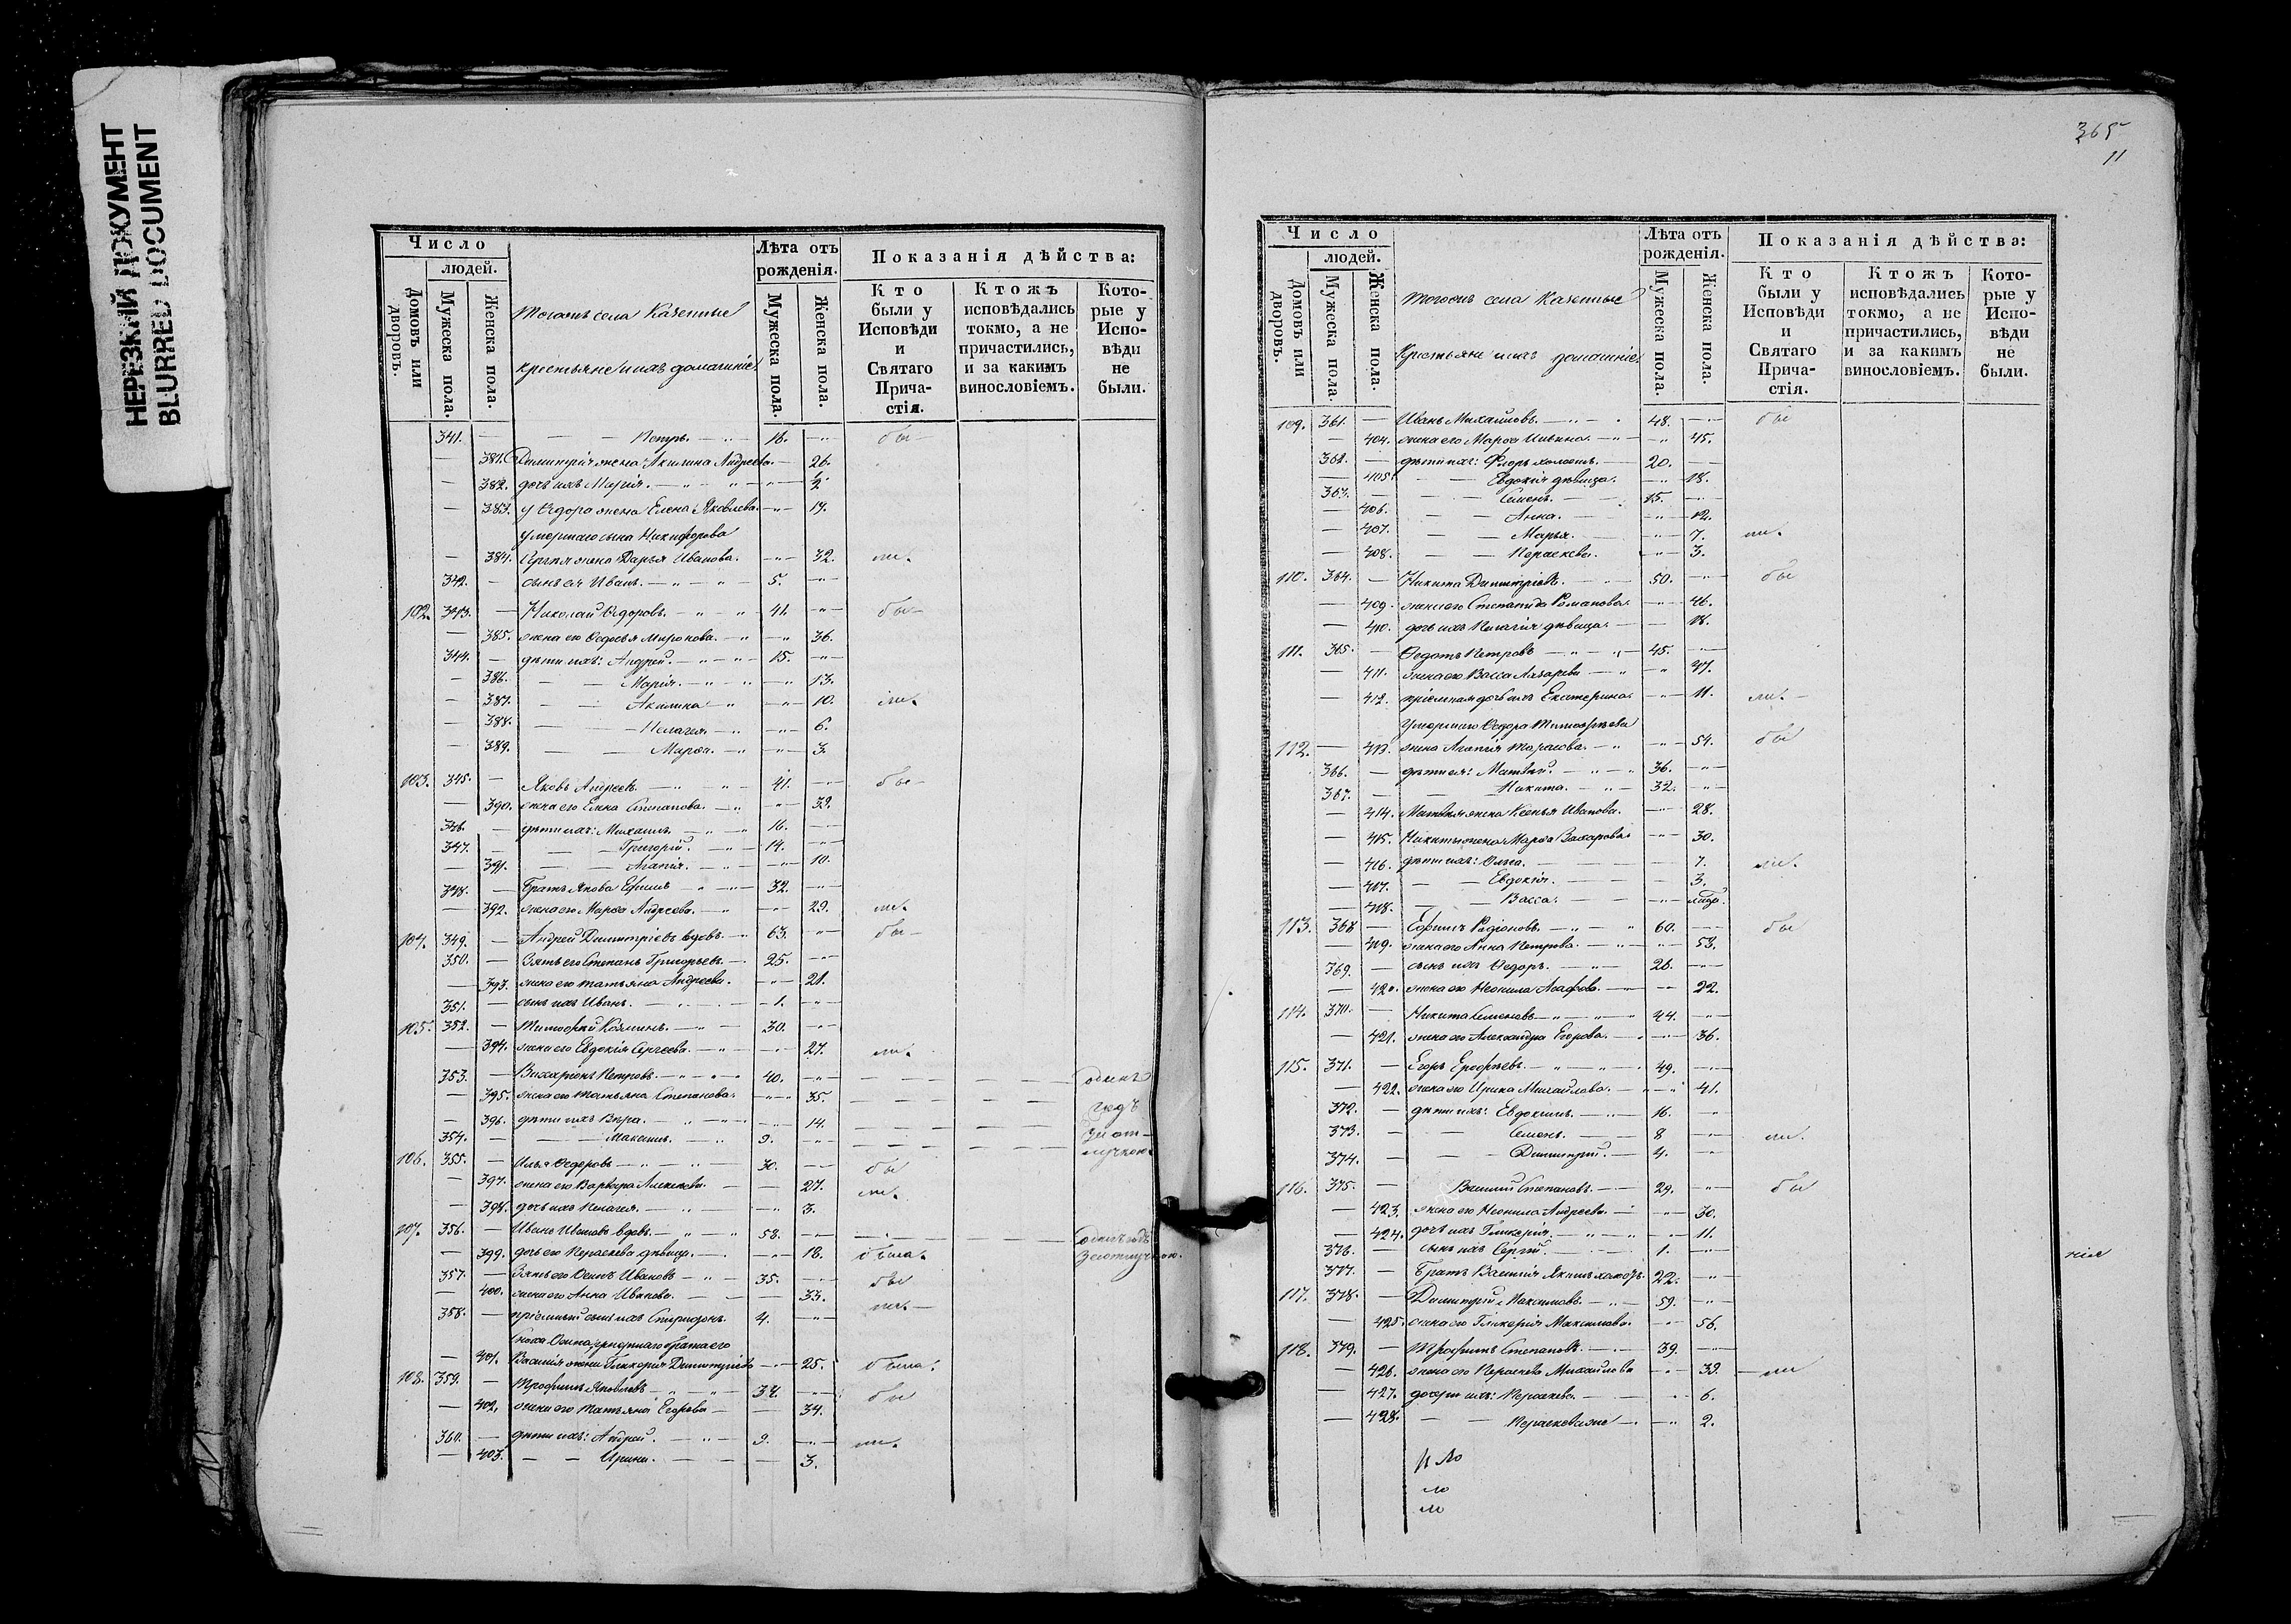 НЕРЕЗКИЙ ДОКУМЕНТ
BLURRED DOCUMENT
Число
людей.
Домовъ или дворовъ.
Мужеска пола.
Женска пола.
Тогожъ села Казенные
крестьяне и ихъ домашніе
Лѣта отъ рожденія.
Мужеска пола.
Женска пола.
Показанія дѣйства:
Кто были у Исповѣди и Святаго Прича-стія.
Ктожъ исповѣдались токмо, а не причастились, и за какимъ винословіемъ.
Кото-рые у Испо-вѣди не были.
341. — — Петръ. — 16. — бы
— 381. Димитрія жена Акилина Андреева. — 26.
— 382. дочь ихъ Марія. —
— 383. у Ѳедора жена Елена Яковлева. — 19.
умершаго сына Никифорова
— 384. Сергія жена Дарья Иванова. — 32. мл.
342. — сынъ ея Иванъ. — 5. —
102. 343. — Николай Ѳедоровъ. — 41. — бы
— 385. жена его Ѳедосья Миронова. — 36.
344. — дѣти ихъ: Андрей. — 15. —
— 386. — Марія. — 13.
— 387. — Акилина — 10. мл.
— 388. — Пелагея. — 6.
— 389. — Марѳа. — 3.
103. 345. — Яковъ Андреевъ. — 41. — бы
— 390. жена его Елена Степанова. — 39.
346. — дѣти ихъ: Михаилъ — 16. —
347. — Григорій. — 14. —
— 391. — Агапія. — 10.
348. — Братъ Якова Ефимъ — 32. —
— 392. жена его Марѳа Андреева. — 29. мл.
104. 349. — Андрей Димитріевъ вдовъ. — 63. — бы
350. — Зять его Степанъ Григорьевъ. — 25. —
— 393. жена его Татьяна Андреева. — 21.
351. — сынъ ихъ Иванъ. — 1. —
105. 352. — Тимофей Козминъ. — 30. —
— 394. жена его Евдокія Сергеева. — 27. мл.
353. — Виссаріонъ Петровъ. — 40. — одинъ
— 395. жена его Татьяна Степанова. — 35. годъ
— 396. дѣти ихъ Вѣра. — 14. за от-
354. — Максимъ. — 9. — лучкою.
106. 355. — Илья Ѳедоровъ — 30. — бы
— 397. жена его Варвара Алексеева. — 27. мл.
— 398. дочь ихъ Пелагея. — 3.
107. 356. — Иванъ Ивановъ вдовъ. — 58. — одинъ годъ
— 399. дочь его Параскева дѣвица. — 18. была. за отлучкою.
357. — Зять его Осипъ Ивановъ — 35. — бы
— 400. жена его Анна Иванова. — 33.
358. — пріемный сынъ ихъ Спиридонъ. 4. — мл. —
— 401. Василія жена Гликерія Димитріева — 25. была.
108. 359. — Трофимъ Яковлевъ — 37. — бы
— 402. жена его Татьяна Егорова — 34.
360. — дѣти ихъ: Андрей. — 9. — мл.
— 403. — Ирина. — 3.
365
11
Число
людей.
Домовъ или дворовъ.
Мужеска пола.
Женска пола.
Тогожъ села Казенные
Крестьяне и ихъ домашніе
Лѣта отъ рожденія.
Мужеска пола.
Женска пола.
Показанія дѣйства:
Кто были у Исповѣди и Святаго Прича-стія.
Ктожъ исповѣдались токмо, а не причастились, и за какимъ винословіемъ.
Кото-рые у Испо-вѣди не были.
109. 361. — Иванъ Михайловъ. — 48. — бы
— 404. жена его Марѳа Ильина. — 45.
362. — дѣти ихъ: Флоръ холостъ. — 20. —
— 405. — Евдокія дѣвица. — 18.
363. — Семенъ. — 15. —
— 406. — Анна. — 12.
— 407. — Марья. — 7. мл.
— 408. — Параскева. — 3.
110. 364. — Никита Димитріевъ. — 50. — бы
— 409. жена его Степанида Романова. — 46.
— 410. дочь ихъ Пелагія дѣвица. — 18.
111. 365. — Ѳедотъ Петровъ — 45. —
— 411. жена его Васса Лазарева — 47.
— 412. пріемная дочь ихъ Екатерина. — 11. мл. —
Умершаго Ѳедора Тимоѳеева
112. — 413. жена Агапія Тарасова. — 54. бы
366. — дѣти ея: Матвей. — 36. —
367. — Никита. — 32. —
— 414. Матвея жена Ксенья Иванова. — 28.
— 415. Никиты жена Марѳа Захарова. — 30.
— 416. дѣти ихъ: Ольга. — 7. мл.
— 417. — Евдокія. — 3.
— 418. — Васса. —
113. 368 — Ефимъ Родіоновъ. — 60. — бы
— 419. жена его Анна Петрова. — 53.
369. — сынъ ихъ Ѳедоръ. — 26. —
— 420. жена его Неонила — 22.
114. 370. — Никита Семеновъ — 44. —
— 421. жена его Александра Егорова. — 36.
115. 371. — Егоръ Ерофѣевъ. — 49. —
— 422. жена его Ирина Михайлова. — 41.
372. — дѣти ихъ: Евдокимъ. — 16. —
373. — Семенъ. — 8 — мл.
374. — Димитрій. — 4. —
116. 375. — Василій Степановъ. — 29. — бы
— 423. жена его Неонила Андреева. — 30.
— 424. дочь ихъ Гликерія. — 11.
376. — сынъ ихъ Сергій. 1. —
377. — Братъ Василія Якимъ холостъ. 22. —
117. 378. — Димитрій Максимовъ. — 59. —
— 425. жена его Гликерія Максимова. — 56.
118. 379. — Трофимъ Степановъ. — 39. —
— 426. жена его Параскева Михайлова — 39. — мл
— 427. дочери ихъ: Параскева. — 6.
— 428. — Параскева же — 2.